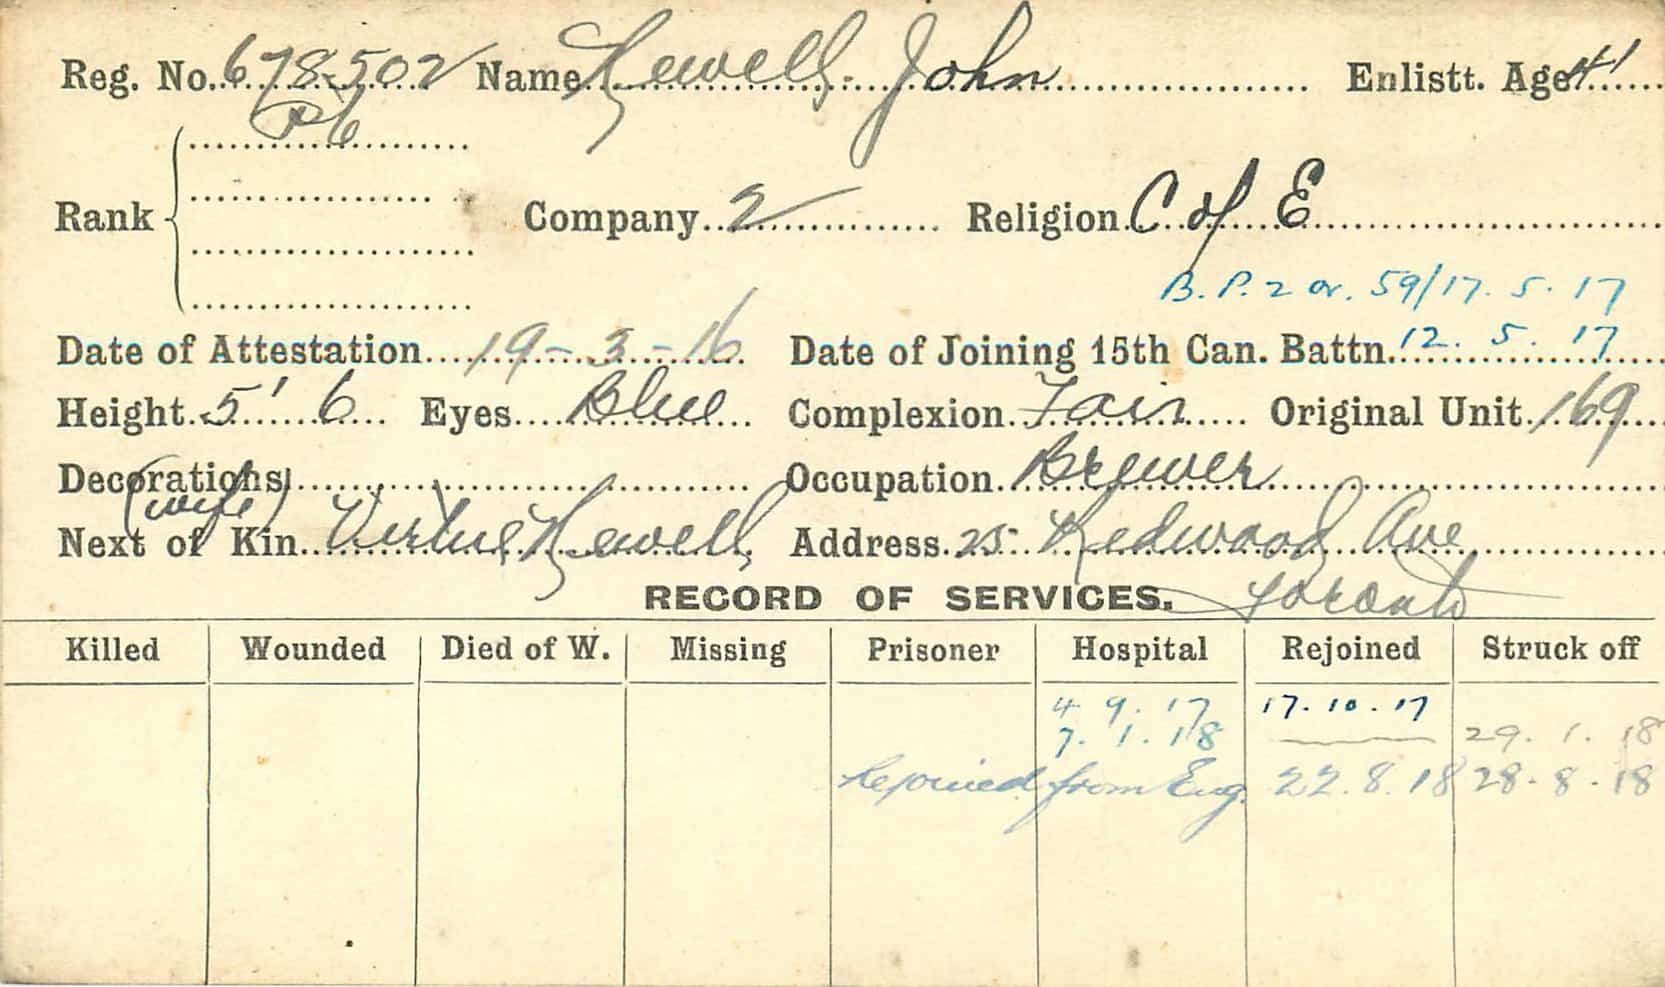 Reg. No. 678502 Name Kewell, John Enlistt. Age 41
Pte
Rank Company 2 Religion C of E
B. P. 2 or. 59/17. 5. 17
Date of Attestation 19-3-16 Date of Joining 15th Can. Battn. 12. 5. 17
Height 5' 6 Eyes Blue Complexion Fair Original Unit 169
Decorations Occupation Brewer
(wife)
Next of Kin Virtue Kewell, Address 25 Redwood Ave
Toronto
RECORD OF SERVICES.
Killed Wounded Died of W. Missing Prisoner Hospital Rejoined Struck off
4. 9. 17 17. 10. 17
7. 1. 18 29. 1. 18
Rejoined from Eng. 22. 8. 18 28. 8. 18